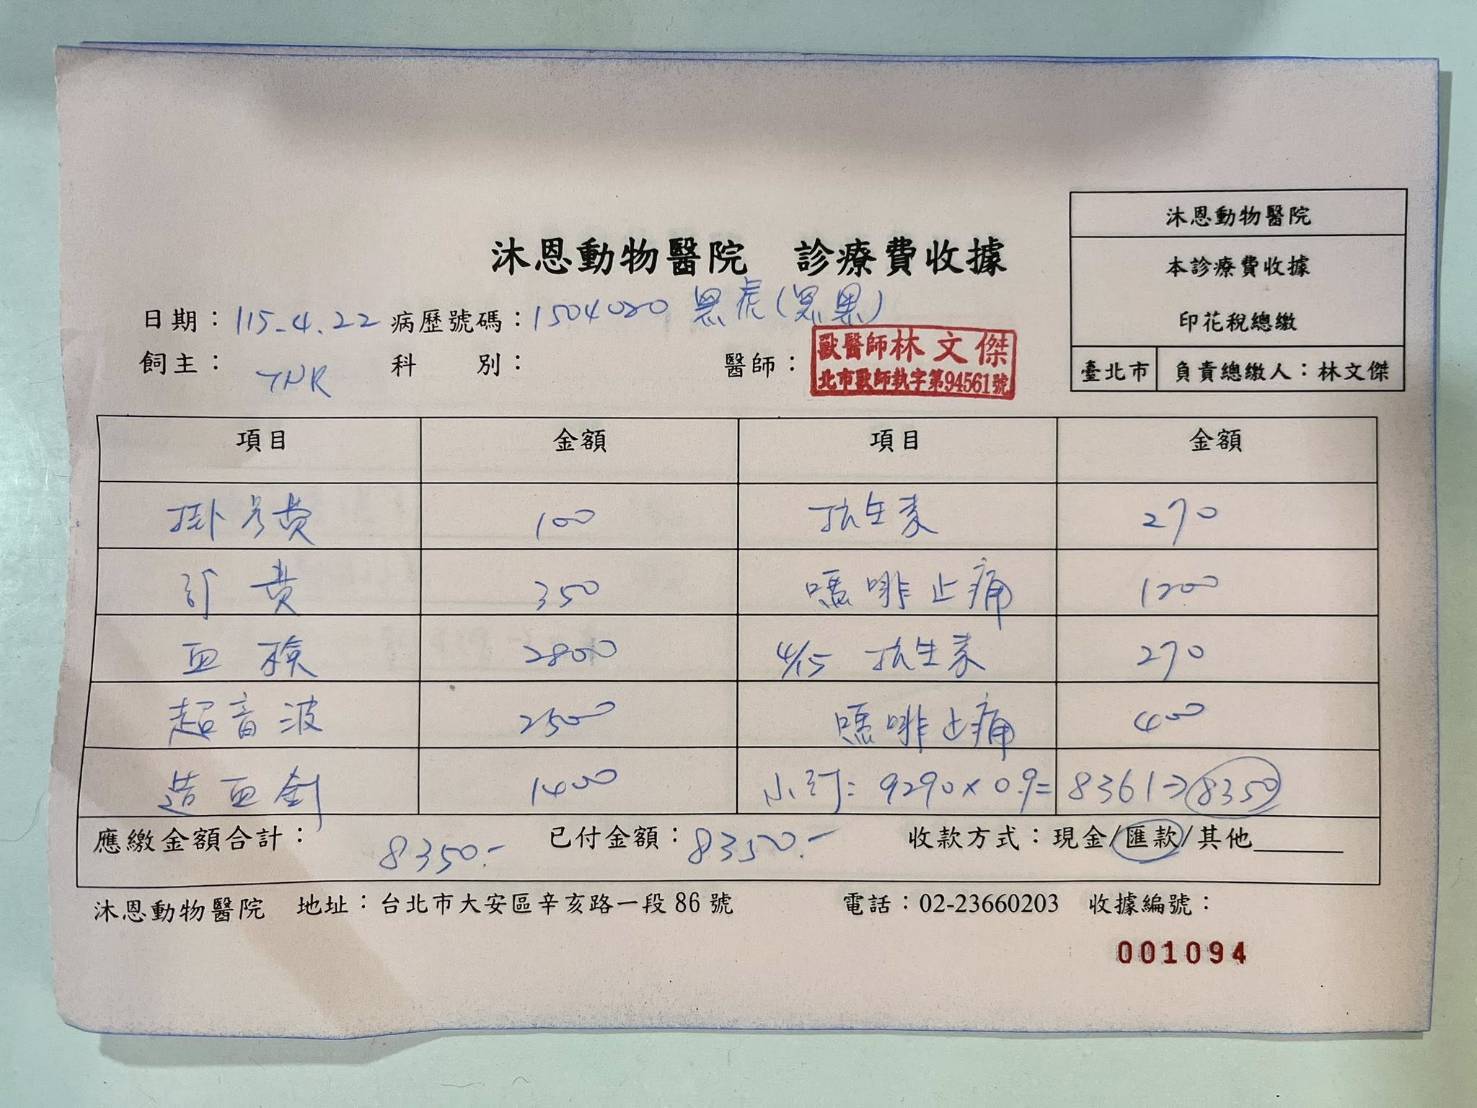 沐恩動物醫院　診療費收據
沐恩動物醫院
本診療費收據
印花稅總繳
臺北市 負責總繳人：林文傑
日期：115.4.22 病歷號碼：1504080 黑虎(黑黑)
飼主：TNR 科　別： 醫師：
獸醫師林文傑
北市獸師執字第94561號
項目 金額 項目 金額
掛号費 100 抗生素 270
診費 350 嗎啡止痛 1200
血檢 2800 4/15 抗生素 270
超音波 2500 嗎啡止痛 400
造血劑 1400 小計：9290×0.9= 8361→8350
應繳金額合計：8350.- 已付金額：8350.- 收款方式：現金/匯款/其他______
沐恩動物醫院 地址：台北市大安區辛亥路一段86號 電話：02-23660203 收據編號：
001094